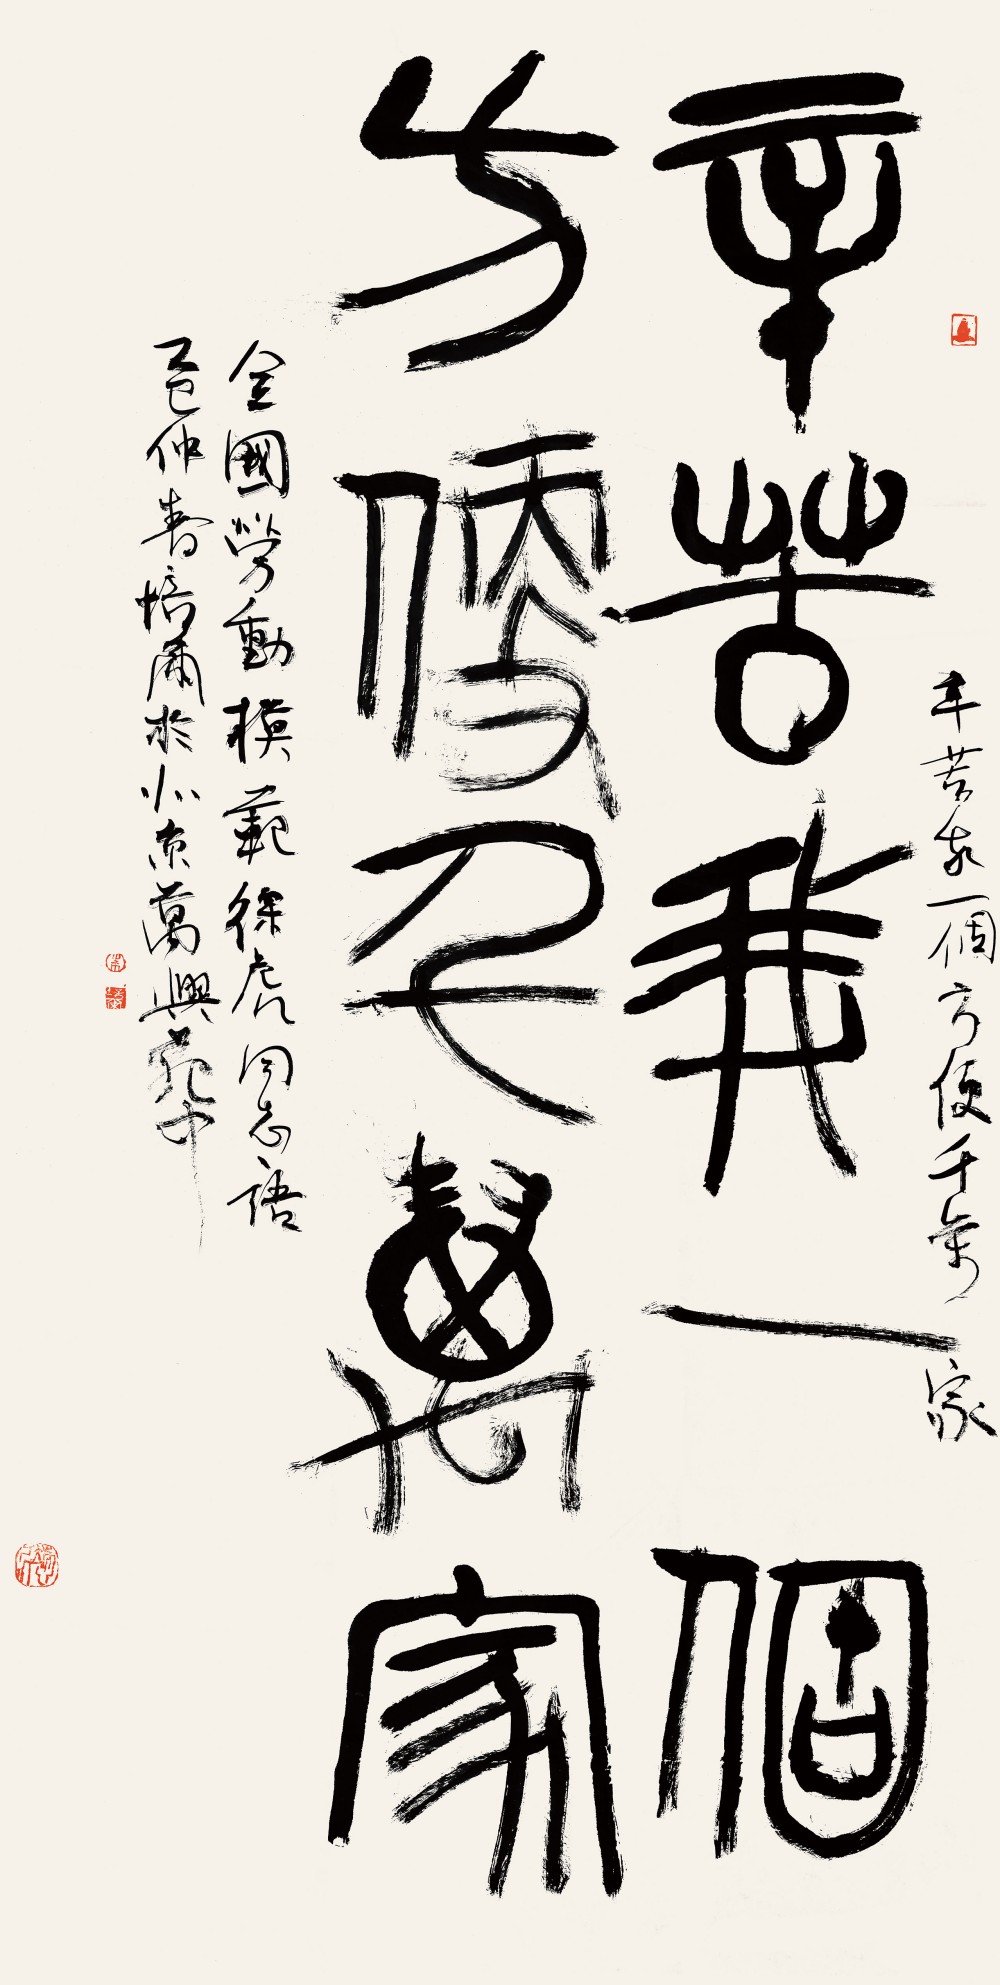 辛苦我一個方便千萬家
辛苦我一個
方便千萬家
全國勞動模範徐虎同志語
乙巳仲春培爾於北京萬興苑中